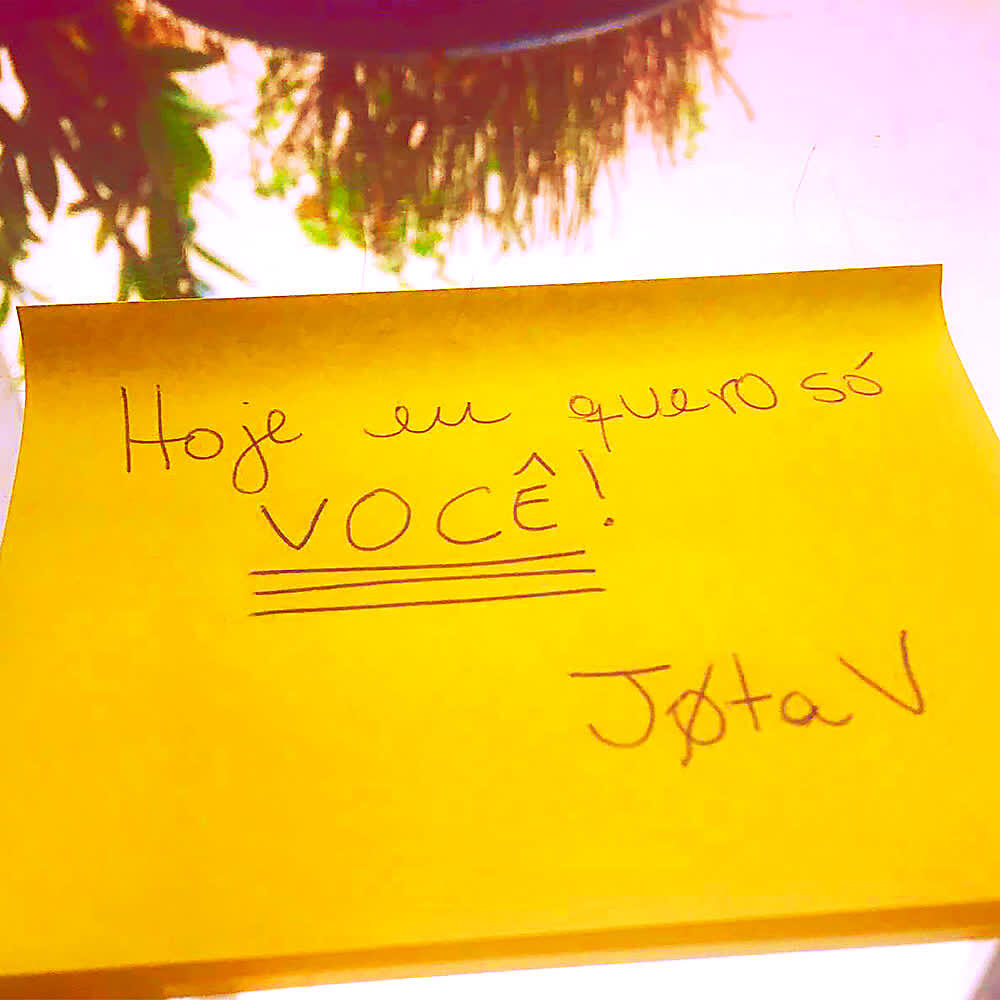 Hoje eu quero só
VOCÊ!
Jøta V